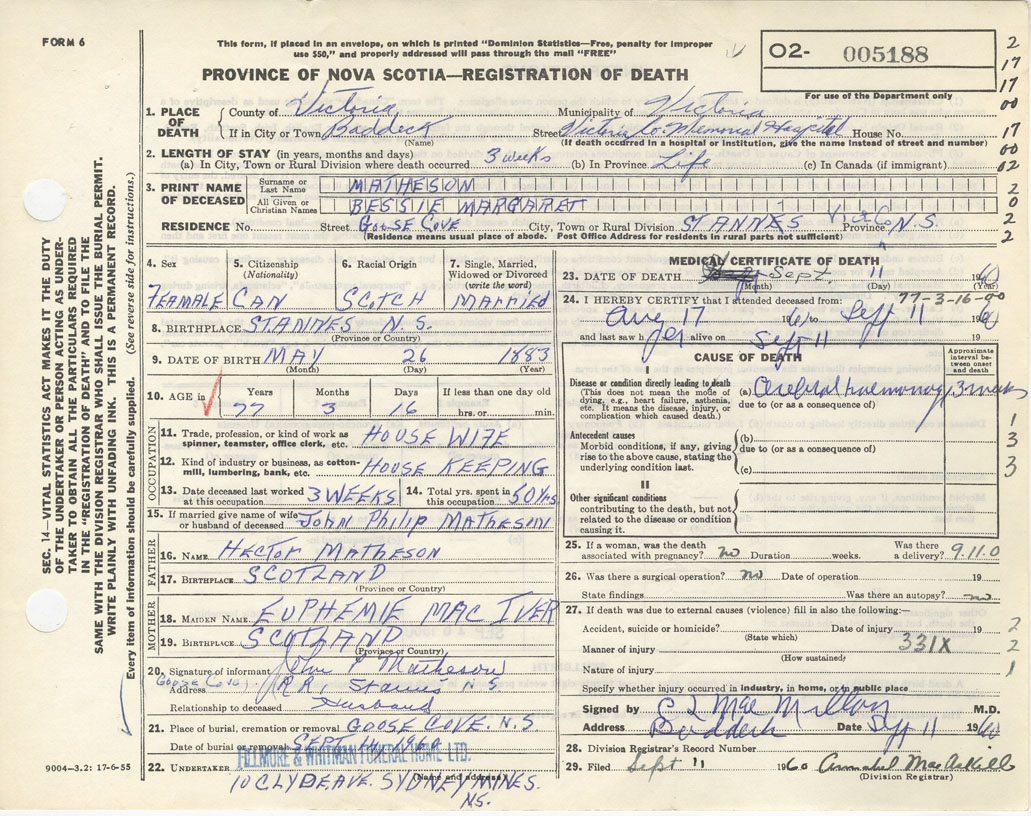 FORM 6
This form, if placed in an envelope, on which is printed "Dominion Statistics—Free, penalty for improper
use $50," and properly addressed will pass through the mail "FREE"
PROVINCE OF NOVA SCOTIA—REGISTRATION OF DEATH
O2- 005188
For use of the Department only
2
17
17
00
17
00
02
2
0
2
2
1. PLACE OF DEATH
County of Victoria Municipality of Victoria
If in City or Town Baddeck Street Victoria Co. Memorial Hospital House No.
(Name) (If death occurred in a hospital or institution, give the name instead of street and number)
2. LENGTH OF STAY (in years, months and days)
(a) In City, Town or Rural Division where death occurred 3 weeks (b) In Province Life (c) In Canada (if immigrant)
3. PRINT NAME OF DECEASED
Surname or Last Name MATHESON
All Given or Christian Names BESSIE MARGARET
RESIDENCE No. Street GOOSE COVE City, Town or Rural Division ST ANNES Vict Co Province N.S.
(Residence means usual place of abode. Post Office Address for residents in rural parts not sufficient)
4. Sex 5. Citizenship (Nationality) 6. Racial Origin 7. Single, Married, Widowed or Divorced (write the word)
FEAMALE CAN SCOTCH MARRIED
8. BIRTHPLACE ST ANNES N.S.
(Province or Country)
9. DATE OF BIRTH MAY 26 1883
(Month) (Day) (Year)
10. AGE in Years Months Days If less than one day old
77 3 16 hrs. or min.
OCCUPATION
11. Trade, profession, or kind of work as spinner, teamster, office clerk, etc. HOUSE WIFE
12. Kind of industry or business, as cotton-mill, lumbering, bank, etc. HOUSE KEEPING
13. Date deceased last worked at this occupation 3 WEEKS 14. Total yrs. spent in this occupation 50 Yrs
15. If married give name of wife or husband of deceased John Philip Matheson
FATHER
16. NAME HECTOR MATHESON
17. BIRTHPLACE SCOTLAND
(Province or Country)
MOTHER
18. MAIDEN NAME EUPHEMIE MAC IVER
19. BIRTHPLACE SCOTLAND
(Province or Country)
20. Signature of informant John P Matheson
Goose Cove Address R.R. St Anns N S
Relationship to deceased Husband
21. Place of burial, cremation or removal GOOSE COVE. N.S
Date of burial or removal SEPT 14, 1960
FILLMORE & WHITMAN FUNERAL HOME LTD.
22. UNDERTAKER
(Name and address)
10 CLYDE AVE. SYDNEY MINES.
N.S.
MEDICAL CERTIFICATE OF DEATH
23. DATE OF DEATH Sept. 11 1960
(Month) (Day) (Year)
77-3-16-00
24. I HEREBY CERTIFY that I attended deceased from:
Aug 17 1960 to Sept 11 1960
and last saw her alive on Sept 11 19
CAUSE OF DEATH
Approximate interval between onset and death
I
Disease or condition directly leading to death
(This does not mean the mode of dying, e.g., heart failure, asthenia, etc. It means the disease, injury, or complication which caused death.)
(a) Cerebral haemorrhage 3 weeks
due to (or as a consequence of)
Antecedent causes
Morbid conditions, if any, giving rise to the above cause, stating the underlying condition last.
(b)
due to (or as a consequence of)
(c)
1
3
3
II
Other significant conditions
contributing to the death, but not related to the disease or condition causing it.
25. If a woman, was the death associated with pregnancy? no Duration weeks. Was there a delivery? 9.11.0
26. Was there a surgical operation? no Date of operation 19
State findings Was there an autopsy? no
27. If death was due to external causes (violence) fill in also the following:—
Accident, suicide or homicide? Date of injury 19 2
(State which)
Manner of injury 331X 2
(How sustained)
Nature of injury 1
Specify whether injury occurred in industry, in home, or in public place
Signed by C L MacMillan M.D.
Address Baddeck Date Sept 11 1960
28. Division Registrar's Record Number
29. Filed Sept 11 1960 Annabel MacAskill
(Division Registrar)
SEC. 14—VITAL STATISTICS ACT MAKES IT THE DUTY
OF THE UNDERTAKER OR PERSON ACTING AS UNDER-
TAKER TO OBTAIN ALL THE PARTICULARS REQUIRED
IN THE "REGISTRATION OF DEATH" AND TO FILE THE
SAME WITH THE DIVISION REGISTRAR WHO SHALL ISSUE THE BURIAL PERMIT.
WRITE PLAINLY WITH UNFADING INK. THIS IS A PERMANENT RECORD.
Every item of information should be carefully supplied. (See reverse side for instructions.)
9004-3.2: 17-6-55